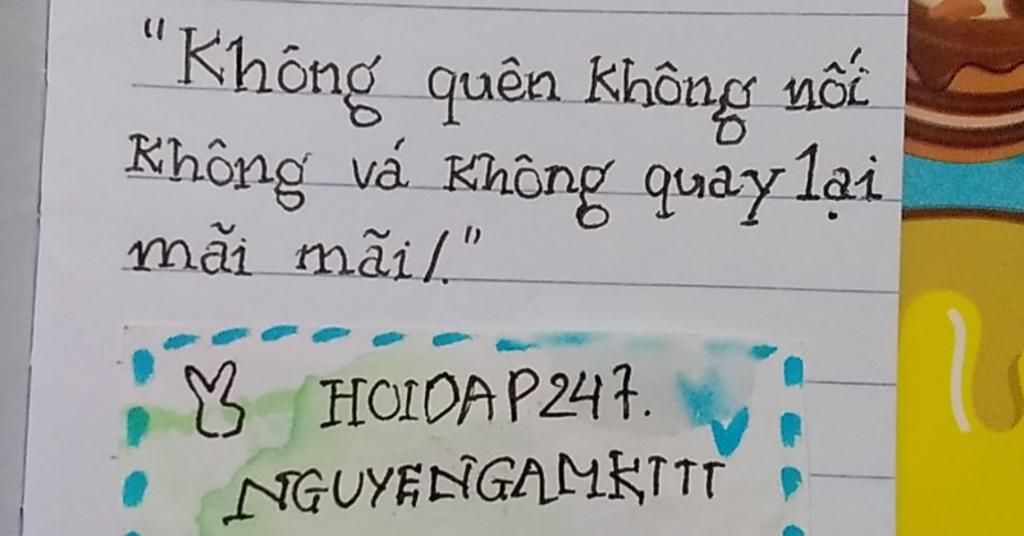 "Không quên không nối
không vá không quay lại
mãi mãi/."
HOIDAP247.
NGUYENGAMKTTT